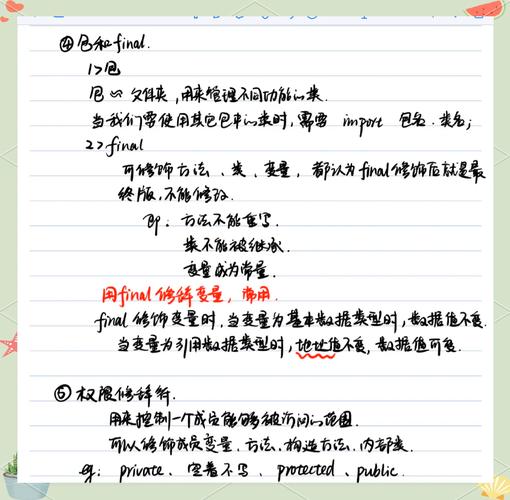 ④包和final.
1>包
包 ≈ 文件夹,用来管理不同功能的类.
当我们需使用其它包中的类时,需要 import 包名.类名;
2>final
可修饰方法、类、变量,都认为final修饰后就是最
终版,不能修改.
即:方法不能重写.
类不能被继承.
变量成为常量.
用final修辞变量,常用.
final修饰变量时,当变量为基本数据类型时,数据值不变.
当变量为引用数据类型时,地址值不变,数据值可变.
⑤权限修辞符.
用来控制一个成员能够被访问的范围.
可以修饰成员变量、方法、构造方法、内部类.
eg: private、空着不写、protected、public.